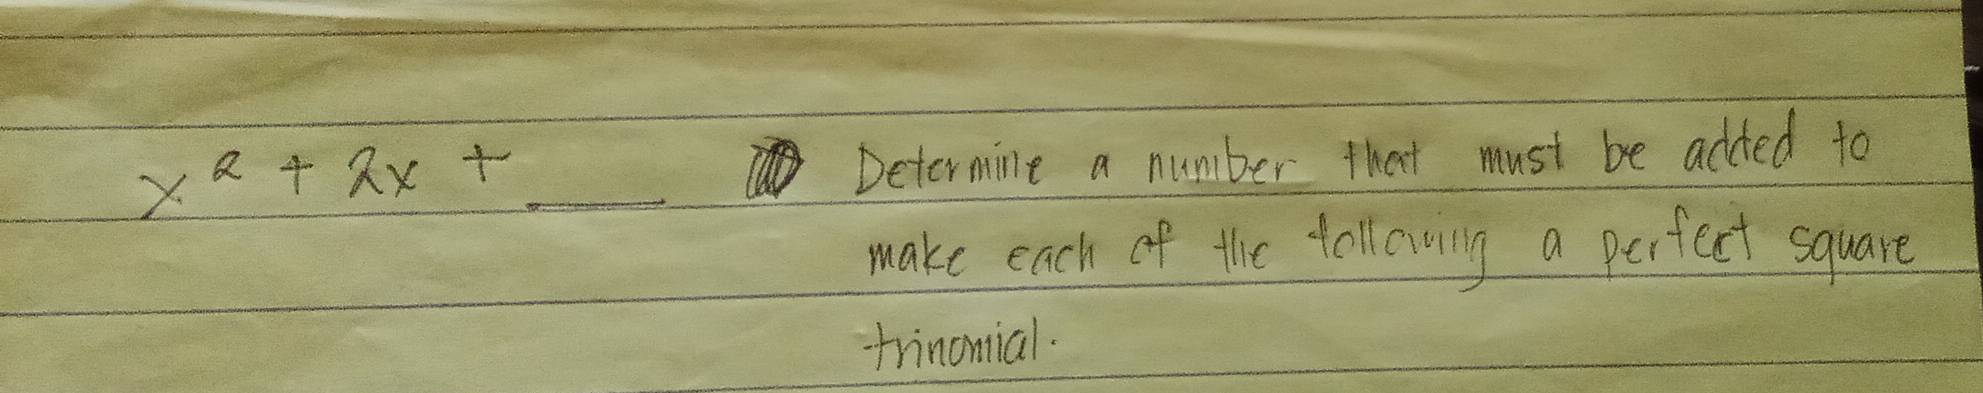 x² + 2x + ____ Determine a number that must be added to
make each of the following a perfect square
trinomial.